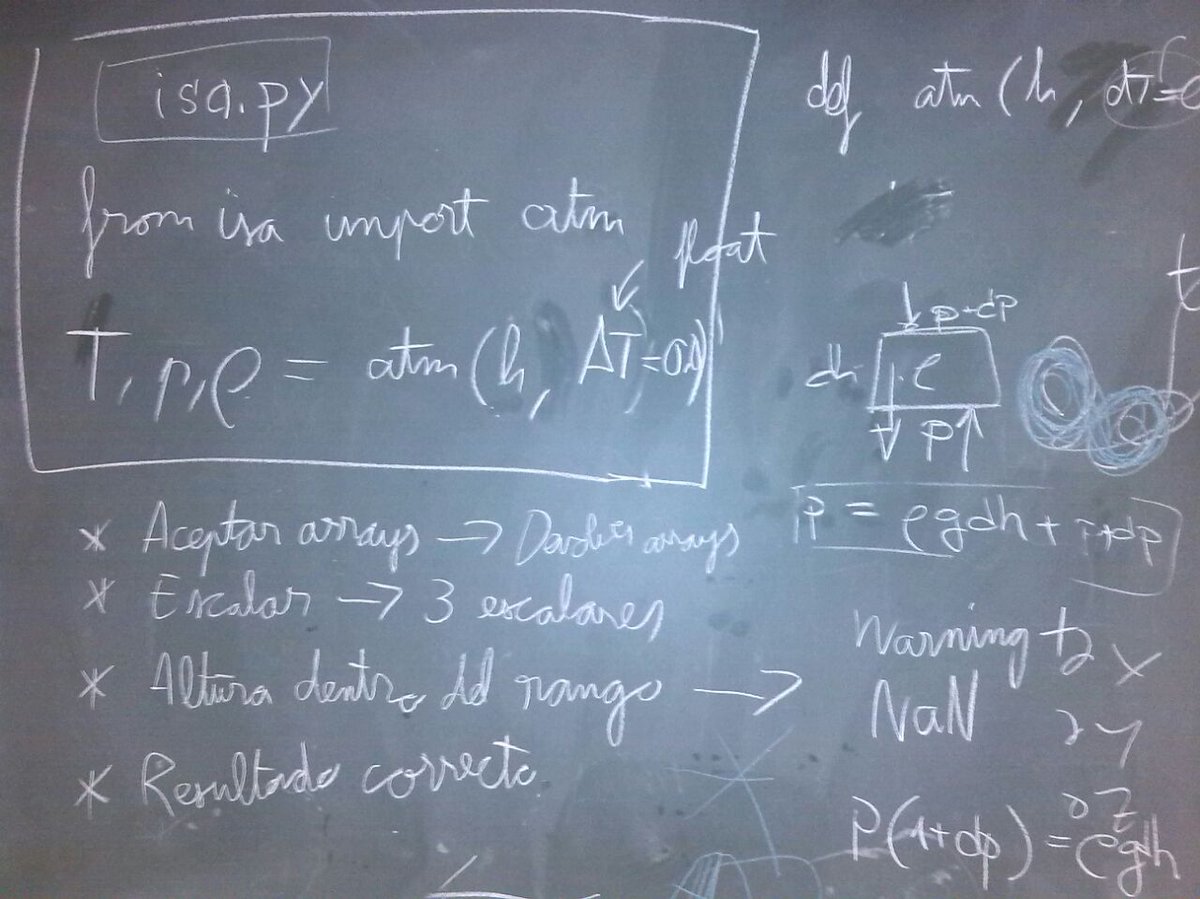 isa.py
from isa import atm
float
T, p, ρ = atm(h, ΔT=0.0)
* Aceptar arrays → Devolver arrays
* Escalar → 3 escalares
* Altura dentro del rango →
* Resultado correcto
def atm(h, dT=0
p+dp
dh ρ
p
P = ρgdh + p+dp
Warning
NaN
x
y
z
P(1+dp) = ρgdh